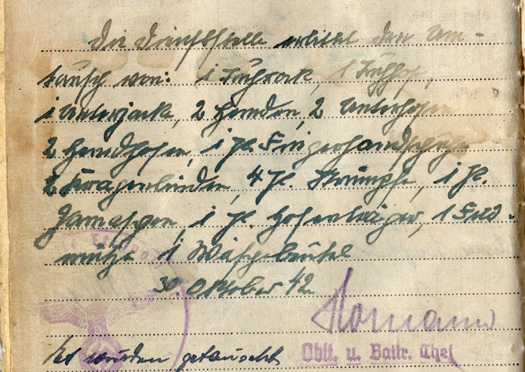 Die Dienststelle erbittet den Um-
tausch von: 1 Tuchrock, 1 Tuchh.,
1 Unterjacke, 2 Hemden, 2 Unterhosen
2 Hemdhosen, 1 P. Fingerhandschuhe
2 Kragenbinden, 4 P. Strümpfe, 1 P.
Gamaschen 1 P. Hosenträger, 1 Feld-
mütze 1 Wäschebeutel
30 Oktober 42
Homann
Oblt. u. Battr. Chef
Es wurden getauscht